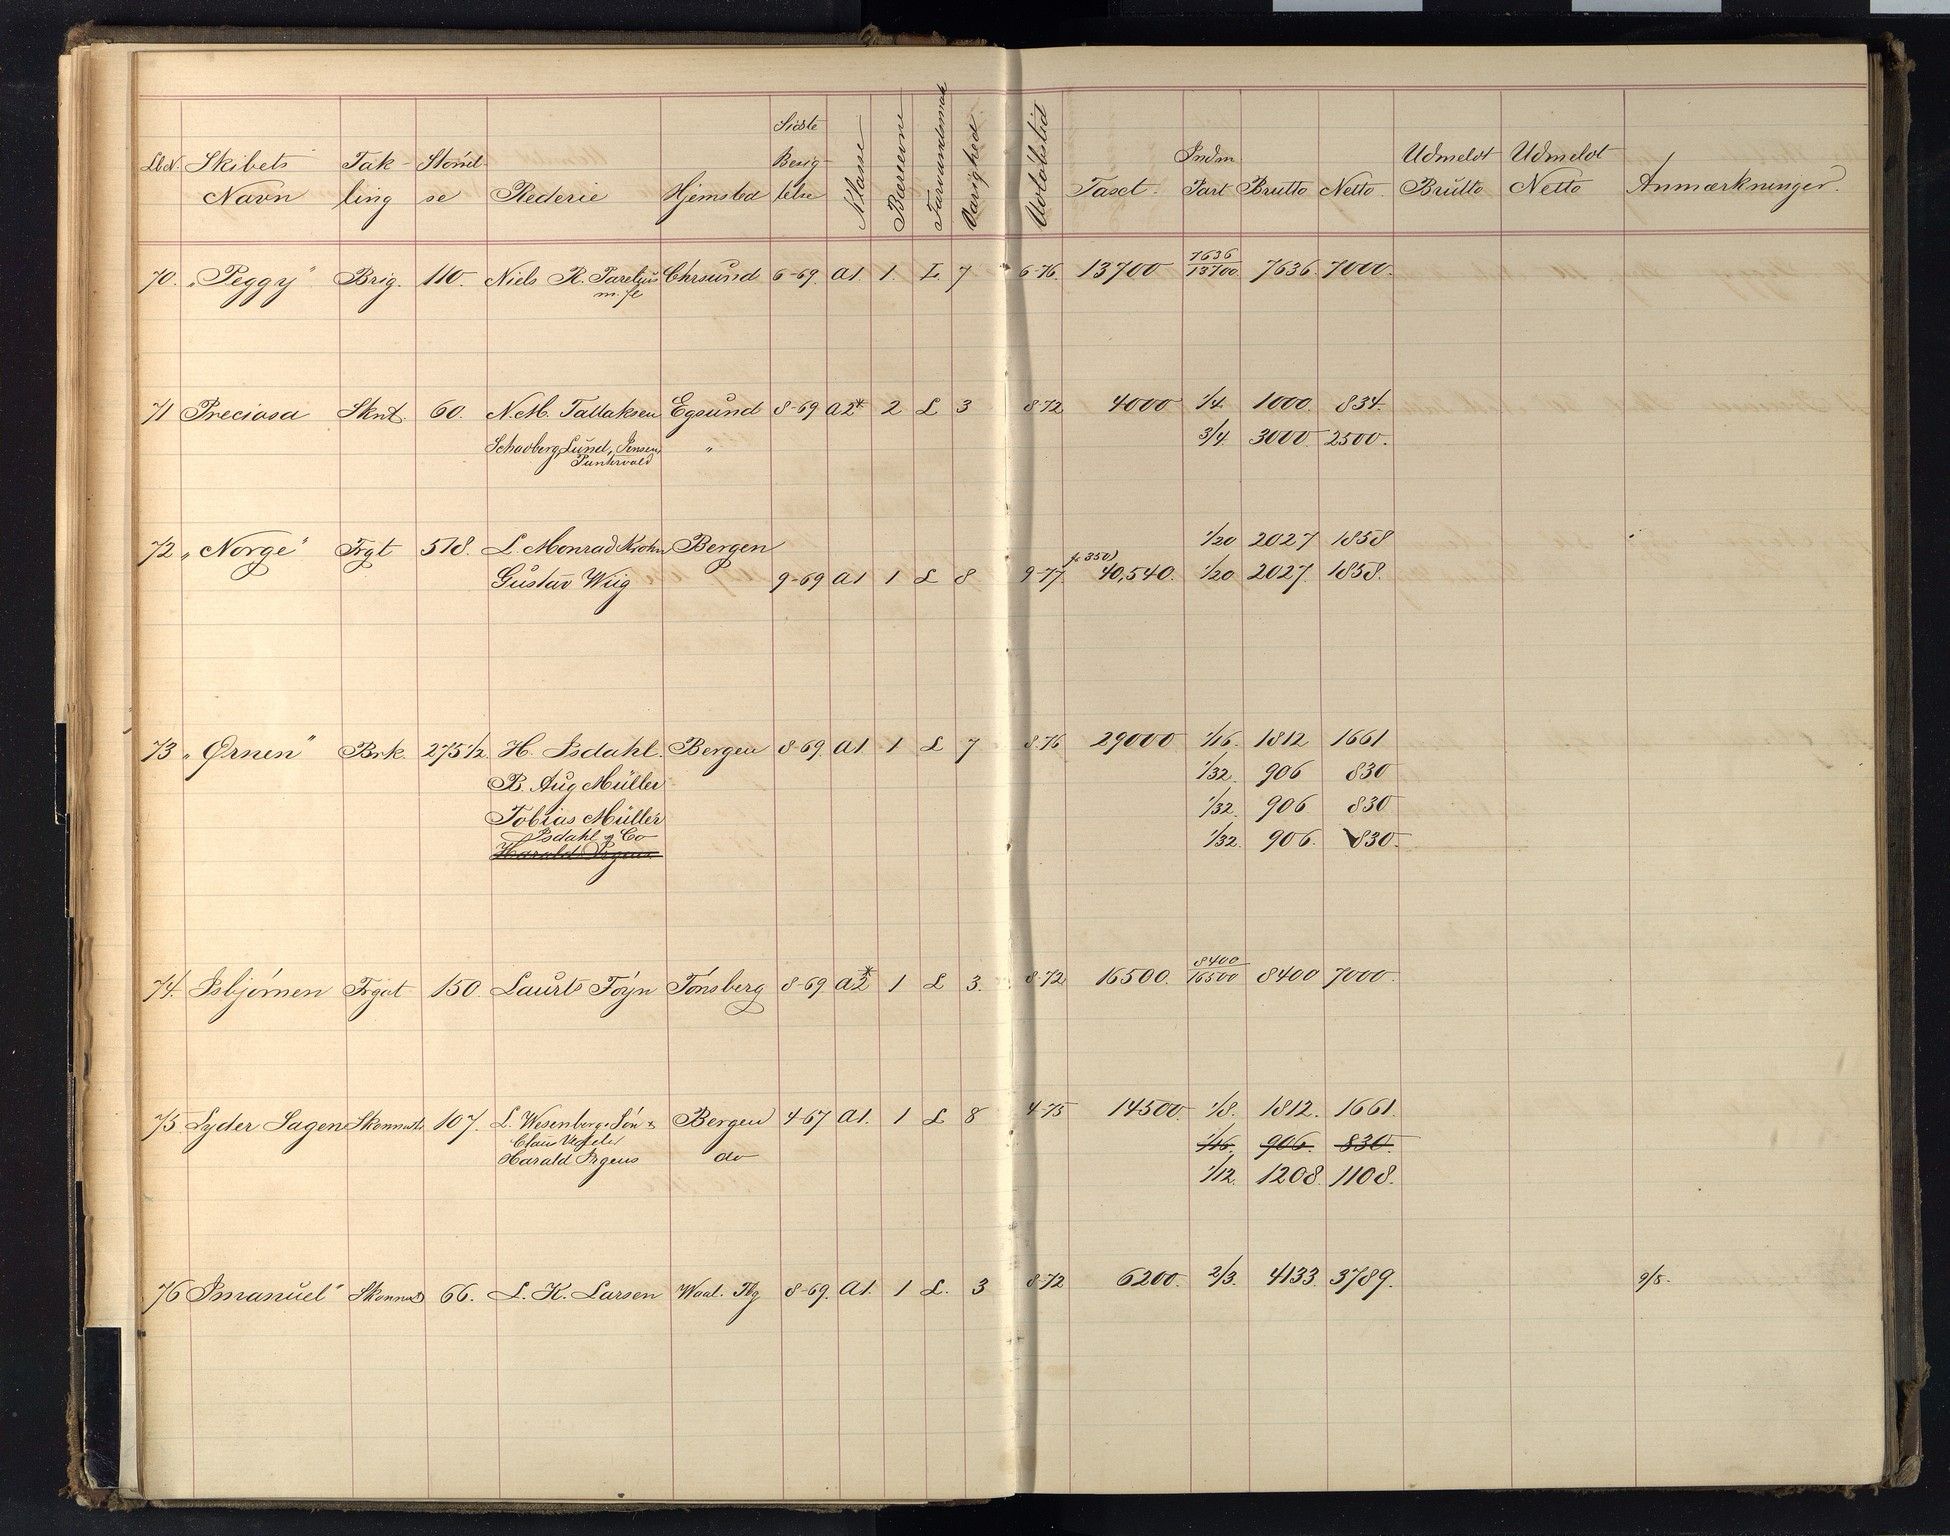 Sidste Indm Udmeldt Udmeldt
LbN. Skibets Tak- Størrel- Besig-
Navn ling se Rederie Hjemsted telse Klasse Bæreevne Farvandsmaal Varighed Udløbstid Taxt. Part Brutto Netto. Brutto Netto Anmærkninger.
7636
70. „Peggy" Brig. 110. Niels R. Pareljus Chrsund 6-69. A1. 1. L 7 6-76. 13700 13700 7636 7000.
m. fl
71 Preciosa Sknt. 60. N. M. Tallaksen Egsund 8-69 A2* 2 L 3 8-72 4000 1/4 1000. 834.
Schavberg, Lund, Jensen, " 3/4 3000 2500.
Puntervold
72 „Norge" Frgt 518. L. Monrad Krohn Bergen 1/20 2027 1858
fr. 350)
Gustav Wiig 9-69 A1 1 L 8 9-77. 40,540. 1/20 2027. 1858.
73 „Ørnen" Brk. 275 1/2 H. Isdahl. Bergen 8-69. A1 1 L 7 8-76 29000 1/16. 1812 1661
B. Aug Müller 1/32. 906 830
Tobias Müller 1/32. 906 830
Isdahl & Co
Harald Irgens 1/32. 906. 830.
8400
74. Isbjørnen Frgat 150. Laurts Föyn Tönsberg 8-69 A2* 1 L 3. 8-72 16500. 16500 8400 7000.
75. Lyder Sagen Skonnert 107. L. Wesenberg & Søn & Bergen 4-67 A1. 1 L 8 4-75 14500 1/8. 1812. 1661.
Claus 1/16. 906. 830.
Harald Irgens do 1/12. 1208. 1108.
76 Imanuel" Skonnert 66. L. K. Larsen Waal. Tbg 8-69. A1. 1 L. 3 8-72 6200. 2/3. 4133 3789. 9/8.